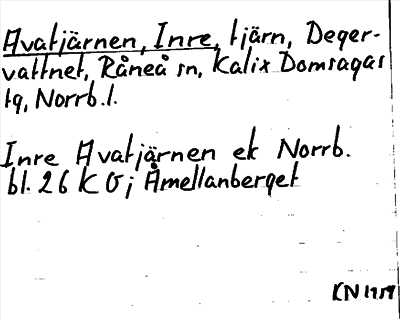 Avatjärnen, Inre, tjärn, Deger-
vattnet, Råneå sn, Kalix Domsagas
tg, Norrb. l.
Inre Avatjärnen ek Norrb.
bl. 26 K Ö; Åmellanberget
KN 1959